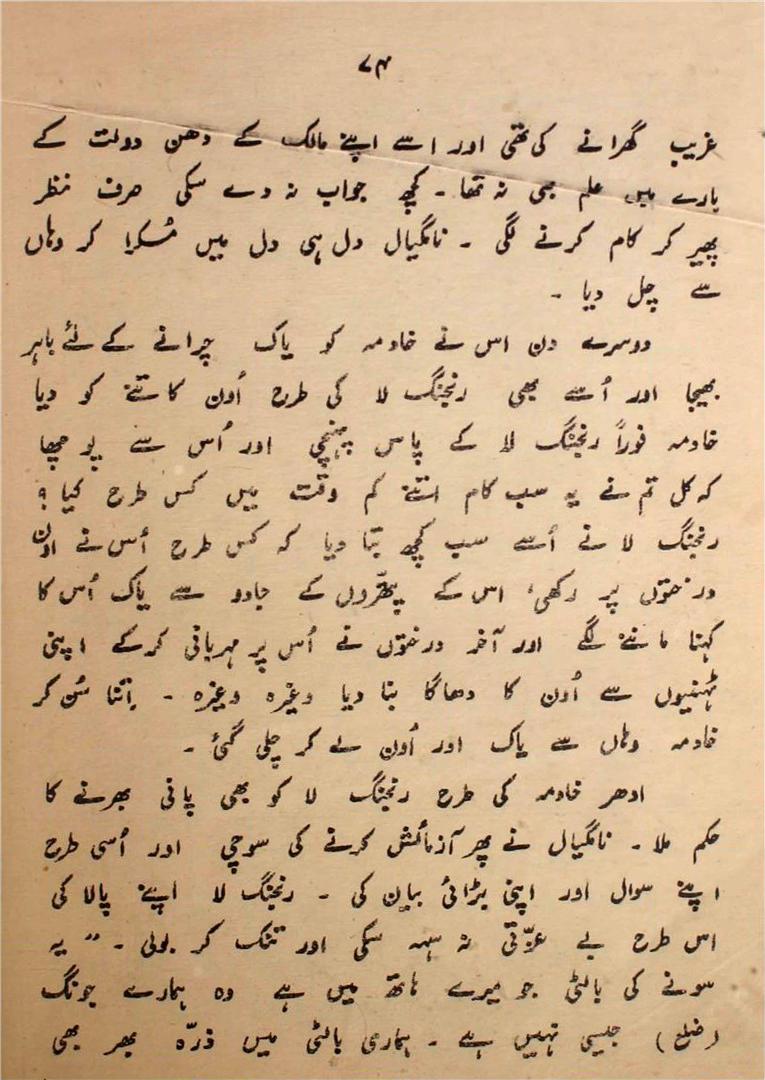 ۷۴
غریب گھرانے کی تھی اور اسے اپنے مالک کے دھن دولت کے
بارے میں علم بھی نہ تھا ۔ کچھ جواب نہ دے سکی صرف نظر
پھیر کر کام کرنے لگی ۔ نامگیال دل ہی دل میں مُسکرا کر وہاں
سے چل دیا ۔
دوسرے دن اس نے خادمہ کو یاک چرانے کے لئے باہر
بھیجا اور اُسے بھی رنجنگ لا کی طرح اُون کاتنے کو دیا
خادمہ فوراً رنجنگ لا کے پاس پہنچی اور اُس سے پوچھا
کہ کل تم نے یہ سب کام اتنے کم وقت میں کس طرح کیا ؟
رنجنگ لا نے اُسے سب کچھ بتا دیا کہ کس طرح اُس نے اون
درختوں پر رکھی، اس کے پتھّروں کے جادو سے یاک اُس کا
کہنا ماننے لگے اور آخر درختوں نے اُس پر مہربانی کرکے اپنی
ٹہنیوں سے اُون کا دھاگا بنا دیا وغیرہ وغیرہ ۔ اِتنا سُن کر
خادمہ وہاں سے یاک اور اُون لے کر چلی گئی ۔
ادھر خادمہ کی طرح رنجنگ لا کو بھی پانی بھرنے کا
حکم ملا ۔ نامگیال نے پھر آزمائش کرنے کی سوچی اور اُسی طرح
اپنے سوال اور اپنی بڑائی بیان کی ۔ رنجنگ لا اپنے پالا کی
اس طرح بے عزّتی نہ سہہ سکی اور تنک کر بولی ۔ " یہ
سونے کی بالٹی جو میرے ہاتھ میں ہے وہ ہمارے چونگ
(ضلع) جیسی نہیں ہے ۔ ہماری بالٹی میں ذرّہ بھر بھی